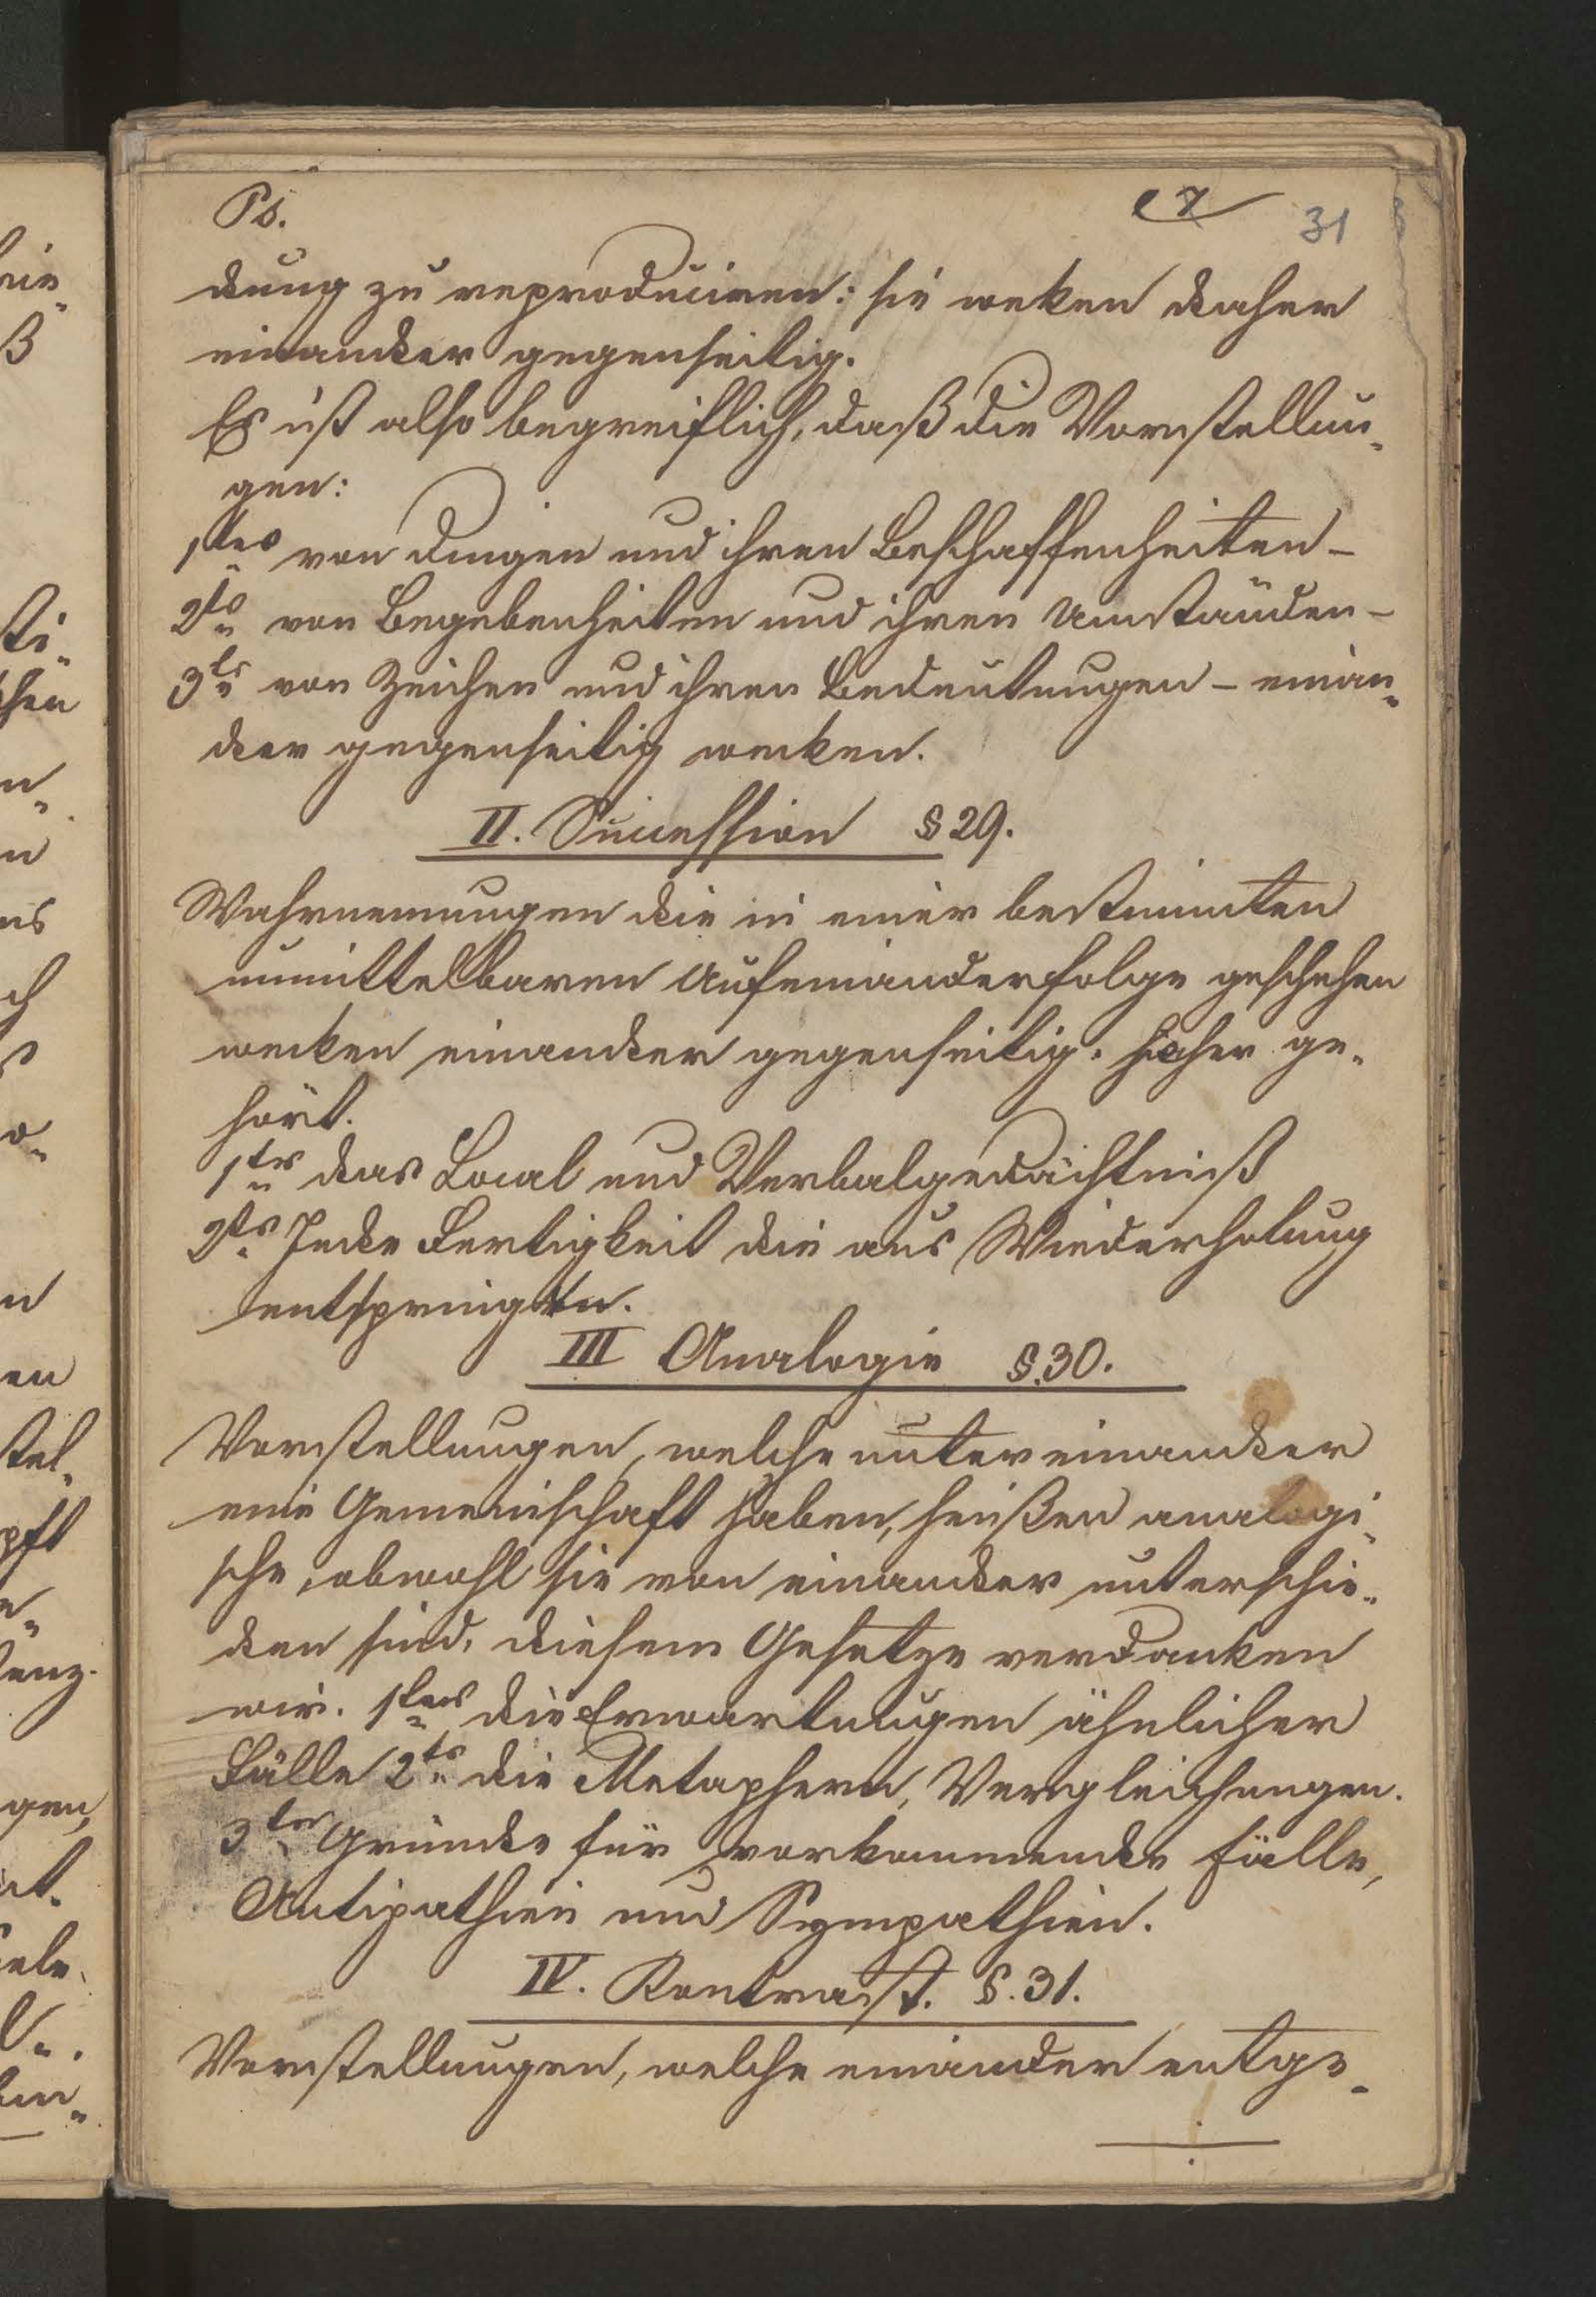 Ps.
31
dung zu reproduciren: sie weken daher
einander gegenseitig.
Es ist also begreiflich, daß die Vorstellun„
gen:
1tens von Dingen und ihren Beschaffenheiten –
2ts von Begebenheiten und ihren Umständen –
3ts von Zeichen und ihren Bedeutungen – einan„
der gegenseitig wecken.
II. Succession § 29.
Wahrnemungen die in einer bestimmten
unmittelbaren Aufeinanderfolge geschehen
wecken einander gegenseitig. Hieher ge„
hört.
1tes das Local und Verbalgedächtniß
2ts Jede Fertigkeit die aus Wiederholung
entspringen.
III Analogie §.30.
Vorstellungen, welche unter einander
eine Gemeinschaft haben, heißen analogi„
sche, obwohl sie von einander unterschie„
den sind. diesem Gesetze verdanken
wir. 1tens die Erwartungen ähnlicher
Fälle 2ts die Metaphern, Vergleichungen.
3tes Gründe für vorkommende Fälle,
Antipathien und Sympathien.
IV. Kontrast. §.31.
Vorstellungen, welche einander entge„